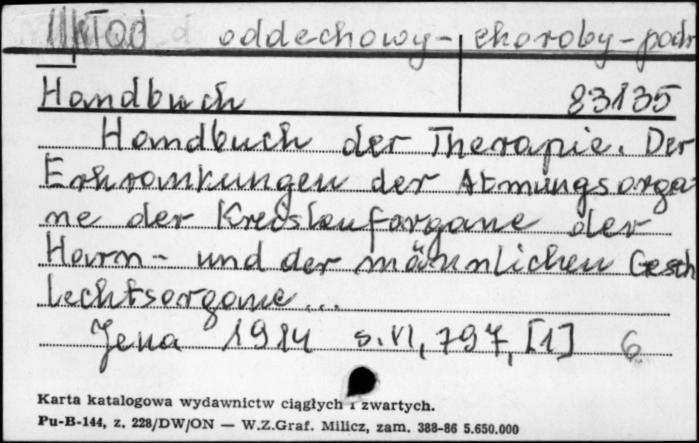 oddechowy - choroby - podr
Handbuch 83135
Handbuch der Therapie. Der
Erkrankungen der Atmungsorga-
ne der Kreislauforgane der
Harn- und der männlichen Gesch
lechtsorgane...
Jena 1914 s. VI, 797, [1] 6
Karta katalogowa wydawnictw ciągłych i zwartych.
Pu-B-144, z. 228/DW/ON — W.Z.Graf. Milicz, zam. 388-86 5.650.000